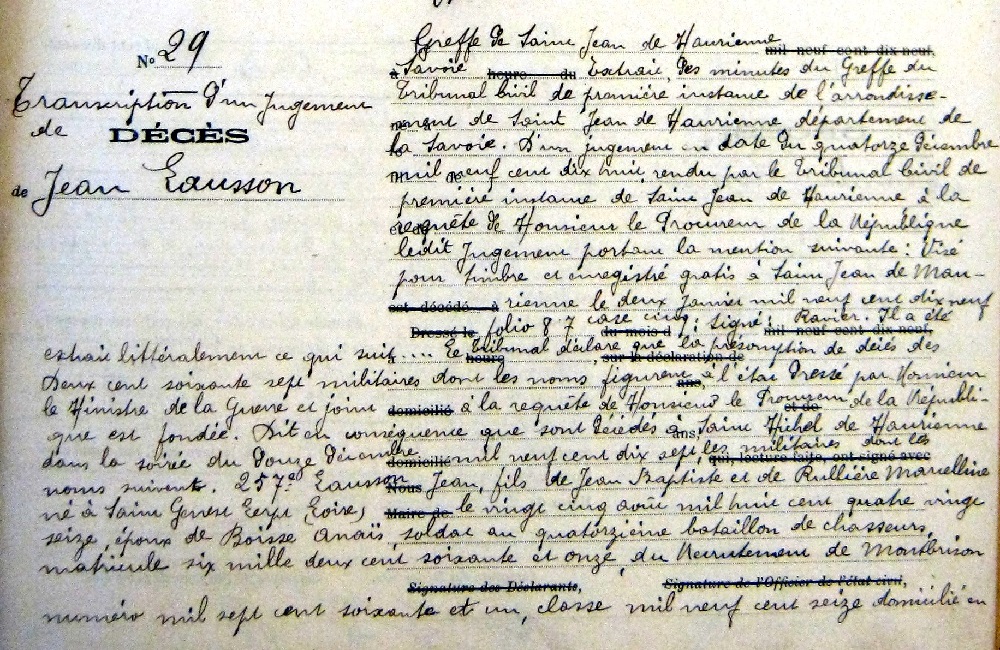 N° 29
Transcription d'un Jugement
de DÉCÈS
de Jean Lausson
Greffe de Saint Jean de Maurienne mil neuf cent dix-neuf,
à Savoie heure du Extrait, des minutes du Greffe du
Tribunal Civil de première instance de l'arrondisse-
ment de Saint Jean de Maurienne département de
la Savoie. D'un jugement en date du quatorze décembre
mil neuf cent dix huit, rendu par le Tribunal Civil de
première instance de Saint Jean de Maurienne à la
requête de Monsieur le Procureur de la République
ledit Jugement portant la mention suivante : Visé
pour timbre et enregistré gratis à Saint Jean de Mau-
est décédé à rienne le deux Janvier mil neuf cent dix neuf
Dressé le folio 87 case cinq du mois d signé : Ravier. Il a été mil neuf cent dix-neuf,
extrait littéralement ce qui suit .... Le Tribunal déclare que la présomption de décès des
heure sur la déclaration de
Deux cent soixante sept militaires dont les noms figurent ans, à l'état dressé par Monsieur
le Ministre de la Guerre et joint domicilié à la requête de Monsieur le Procureur et de de la Républi-
que est fondée. Dit en conséquence que sont décédés à ans, Saint Michel de Maurienne
dans la soirée du douze décembre domicilié mil neuf cent dix sept, les militaires dont les qui, lecture faite, ont signé avec
noms suivent. 257° Lausson Nous Jean, fils de Jean Baptiste et de Rullière Marcelline
né à Saint Genest Lerpt Loire, Maire de le vingt cinq août mil huit cent quatre vingt
seize, époux de Boisse Anaïs, soldat au quatorzième bataillon de chasseurs,
matricule six mille deux cent soixante et onze, du Recrutement de Montbrison
Signature des Déclarants, Signature de l'Officier de l'état civil,
numéro mil sept cent soixante et un, classe mil neuf cent seize domicilié en